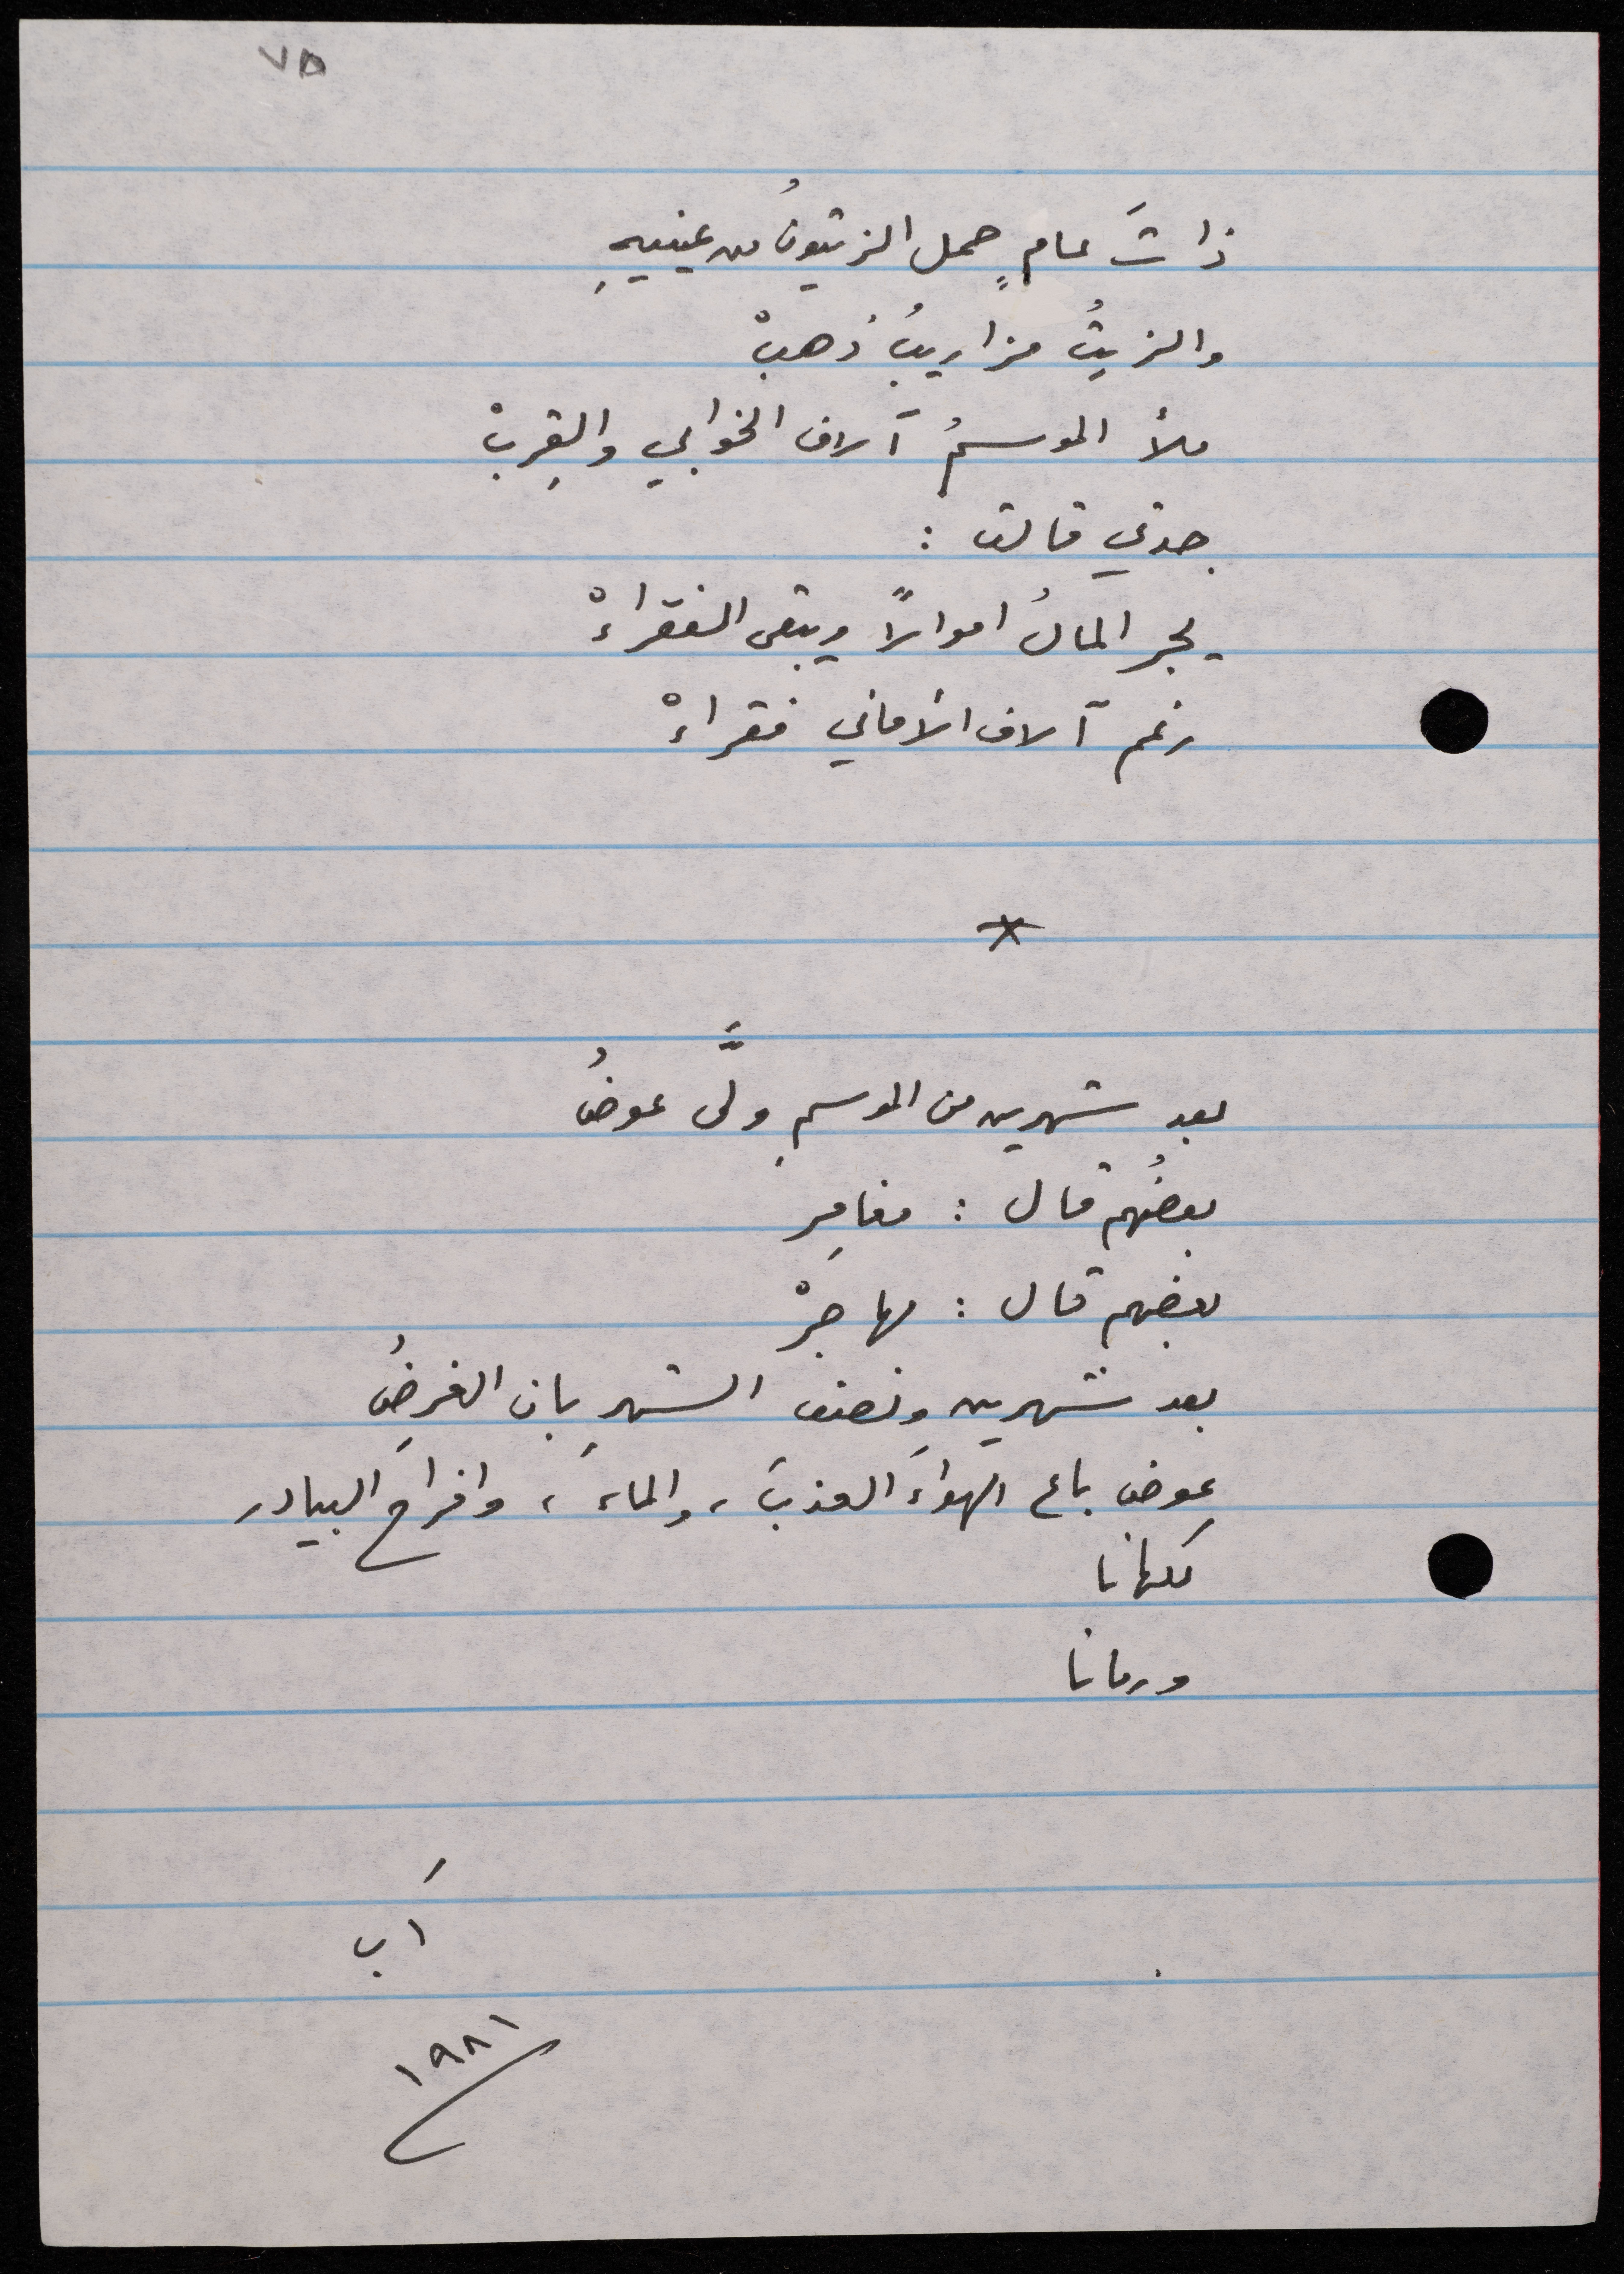 ٧٥
ذاتَ عامٍ حمل الزيتونُ من عينيهِ
والزيتُ مزاريبُ ذهبْ
ملأ الموسمُ آلاف الخوابي والقِربْ
جدتي قالت :
يجر المالُ اموالاً ويبقى الفقراءْ
رغم آلاف الأماني فقراءْ
*
بعد شهرين من الموسمِ ولَّى عوضُ
بعضُهم قال : مغامِر
بعضهم قال : مهاجرْ
بعد شهرين ونصف الشهرِ بان الغرضُ
عوض باع الهواءَ العذبَ ، والماءَ ، وافراحَ البيادر
كلها نا
ورمانا
آب
١٩٨١